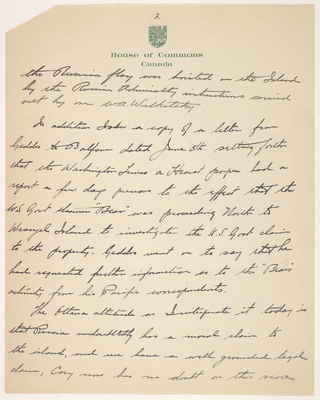 3.
House of Commons
Canada
the Russian flag was hoisted on the Island
by the Russian Admiralty instructions carried
out by one
In addition I saw a copy of a letter from
Geddes to Balfour dated June 5th. setting forth
that the Washington Times a Hearst paper had a
report a few days previous to the effect that the
U.S Govt steamer "Bear" was proceeding North to
Wrangel Island to investigate the U.S Govt claim
to the property. Geddes went on to say that he
had requested further information as to the "Bear's"
activity from his Pacific correspondents.
The Ottawa attitude as I anticipate it today is
that Russia undoubtedly has a moral claim to
the island, and we have a well grounded legal
claim, Cory now has no doubt on this score